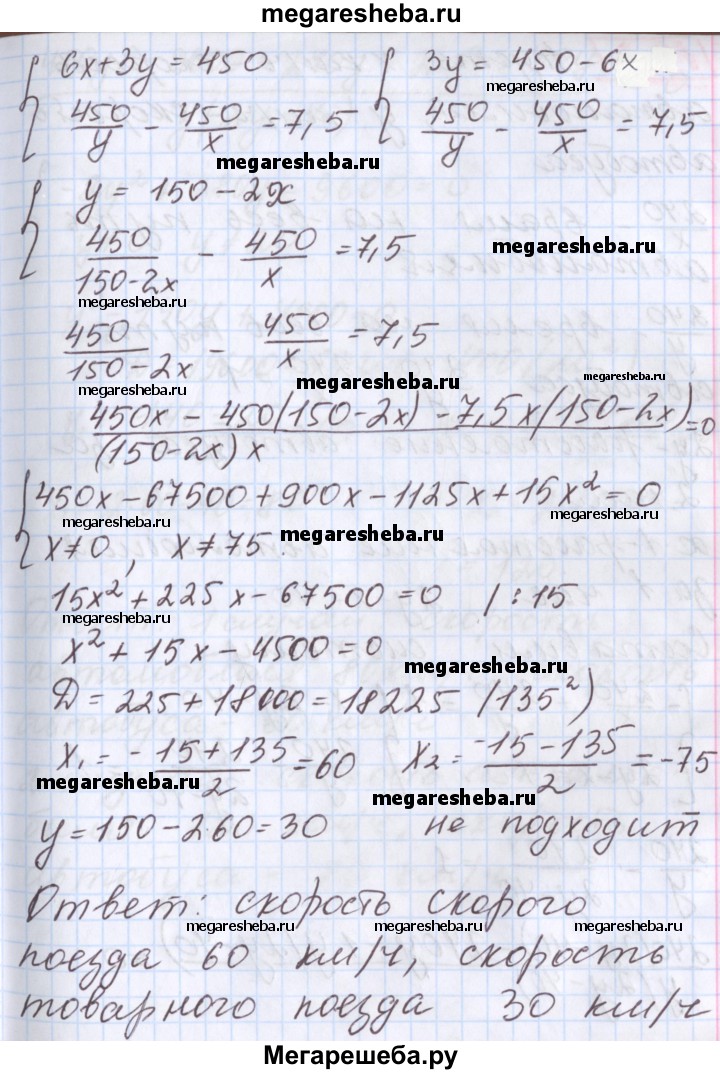 megaresheba.ru
6x+3y=450 3y=450-6x
450/y - 450/x = 7,5 450/y - 450/x = 7,5
megaresheba.ru megaresheba.ru
megaresheba.ru
y = 150-2x
450/(150-2x) - 450/x = 7,5
megaresheba.ru
megaresheba.ru
450/(150-2x) - 450/x = 7,5
megaresheba.ru
megaresheba.ru megaresheba.ru
(450x - 450(150-2x) - 7,5x(150-2x))/((150-2x)x) = 0
450x-67500+900x-1125x+15x²=0
megaresheba.ru megaresheba.ru
x≠0, x≠75. megaresheba.ru
15x²+225x-67500=0 /:15
x²+15x-4500=0
megaresheba.ru
D=225+18000=18225 (135²)
x₁=(-15+135)/2=60 x₂=(-15-135)/2=-75
megaresheba.ru
megaresheba.ru
y=150-2·60=30 не подходит
Ответ: скорость скорого
megaresheba.ru megaresheba.ru
поезда 60 км/ч, скорость
megaresheba.ru megaresheba.ru
товарного поезда 30 км/ч
Мегарешеба.ру